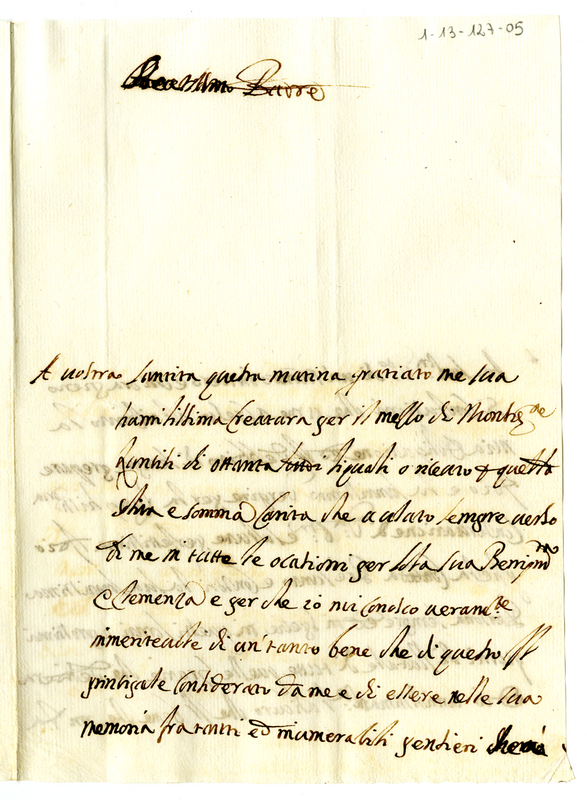 1-13-127-05
Beatissimo Padre
A vostra Santita questa matina gratiato me sua
humilissima Creatura per il mezzo di Monsig.re
di ottanta scudi liquali o riceuto quella
e somma Carita che a usato sempre verso
di me in tutte le ocationi per sola sua
Clemenza e per che io mi conosco veram.te
inmeritevole di un'tanto bene che di questo
principale considerato da me e di essere nella sua
memoria fra tanti ed inumerabili pensieri